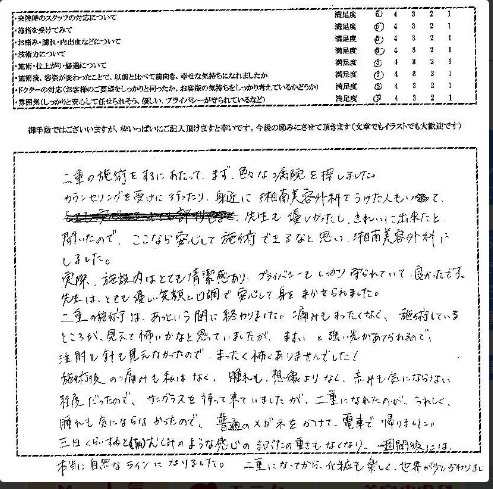 ・来院時のスタッフの対応について 満足度 5 4 3 2 1
・施術を受けてみて 満足度 5 4 3 2 1
・お痛み・腫れ・内出血などについて 満足度 5 4 3 2 1
・技術力について 満足度 5 4 3 2 1
・施術・仕上がり・経過について 満足度 5 4 3 2 1
・施術後、容姿が変わったことで、以前と比べて前向き、幸せな気持ちになれましたか 満足度 5 4 3 2 1
・ドクターの対応(お客様のご要望をしっかりと伺ったか、お客様の気持ちをしっかり考えているかどうか) 満足度 5 4 3 2 1
・雰囲気(しっかりと安心して任せられそう、優しい、プライバシーが守られているなど) 満足度 5 4 3 2 1
御手数ではございますが、枠いっぱいにご記入頂けますと幸いです。今後の励みにさせて頂きます(文章でもイラストでも大歓迎です)
二重の施術をするにあたって、まず、色々な病院を探しました。
カウンセリングを受けに行ったり、身近に湘南美容外科でうけた人もいて、
先生も優しかったし、きれいに出来たと
聞いたので、ここなら安心して施術できるなと思い、湘南美容外科に
しました。
実際、施設内はとても清潔感あり、プライバシーもしっかり守られていて良かったです。
先生は、とても優しい笑顔と口調で安心して身をまかせられました。
二重の施術は、あっという間に終わりました。痛みもまったくなく、施術している
ところが、見えて怖いかなと思っていましたが、まぶしいと強い光があてられるので、
注射も針も見えなかったので、まったく怖くありませんでした!
施術後の痛みも私はなく、腫れも、想像よりなく、赤みも気にならない
程度だったので、サングラスを持って来ていましたが、二重になれたのが、うれしく、
腫れも気にならなかったので、普通のメガネをかけて、電車で帰りました。
三日くらいすると のような感じの まぶたの重さもなくなり、一週間後には、
本当に自然なラインになりました。 二重になってから、化粧も楽しく、世界が少しかわりました